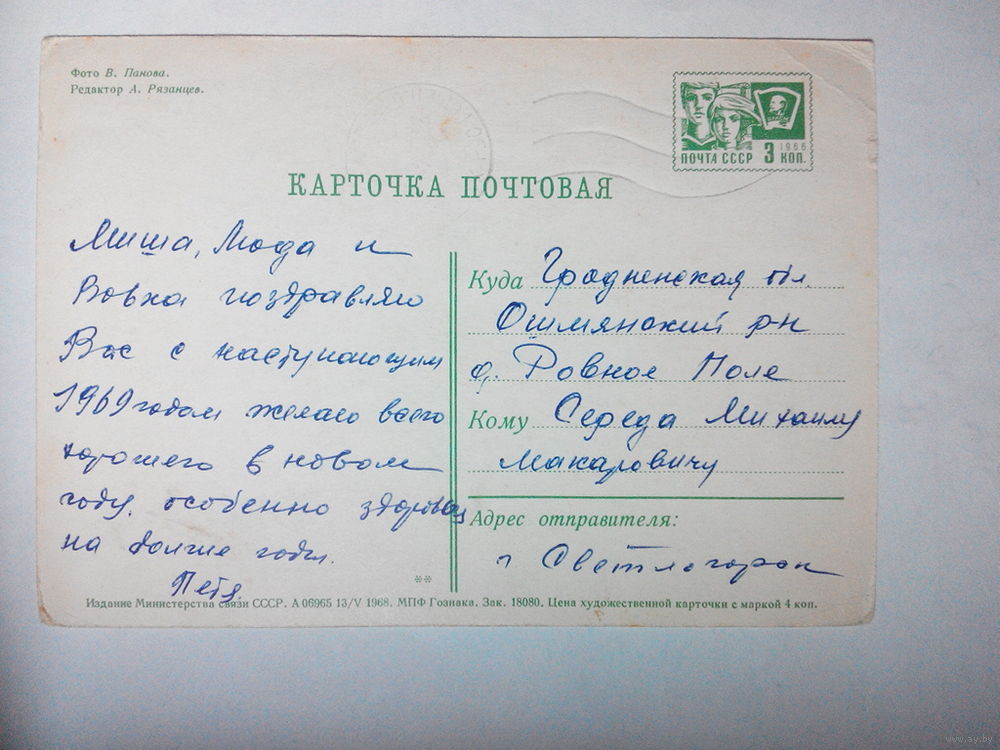 Фото В. Панова.
Редактор А. Рязанцев.
ПОЧТА СССР 3 КОП.
1966
КАРТОЧКА ПОЧТОВАЯ
Миша, Люда и
Вовка поздравляю
Вас с наступающим
1969 годом желаю всего
хорошего в новом
году, особенно здоровья
на долгие годы.
Петя.
Куда Гродненская обл.
Ошмянский р-н
д. Ровное Поле
Кому Середа Михаилу
Макаровичу
Адрес отправителя:
г Светлогорск
**
Издание Министерства связи СССР. А 06965 13/V 1968. МПФ Гознака. Зак. 18080. Цена художественной карточки с маркой 4 коп.
www.ay.by